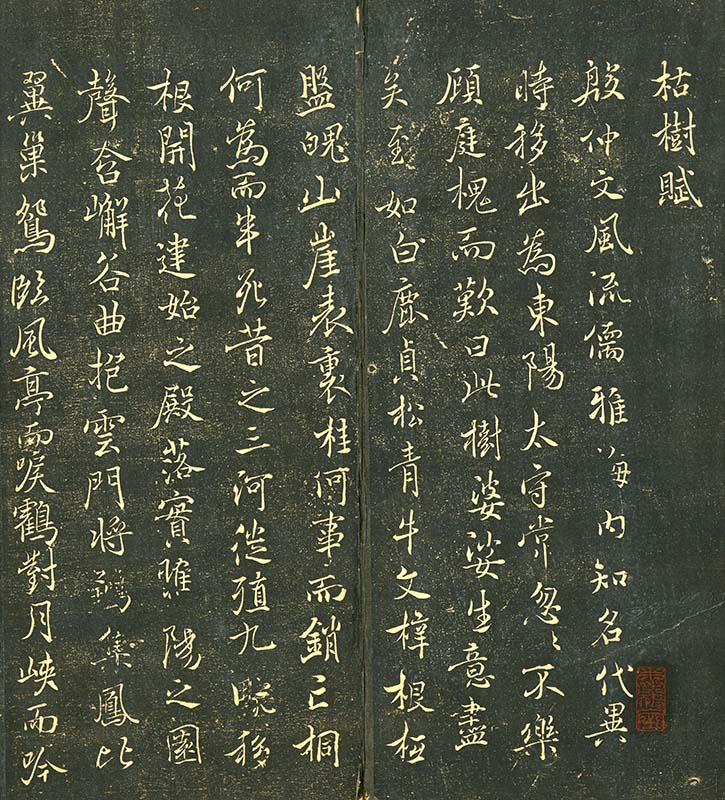 枯樹賦
殷仲文風流儒雅海内知名代異
時移出為東陽太守常忽忽不樂
顧庭槐而歎曰此樹婆娑生意盡
矣至如白鹿貞松青牛文梓根柢
盤魄山崖表裏桂何事而銷亡桐
何為而半死昔之三河徙殖九畹移
根開花建始之殿落實睢陽之園
聲含嶰谷曲抱雲門將鶵集鳳比
翼巢鴛臨風亭而唳鶴對月峽而吟